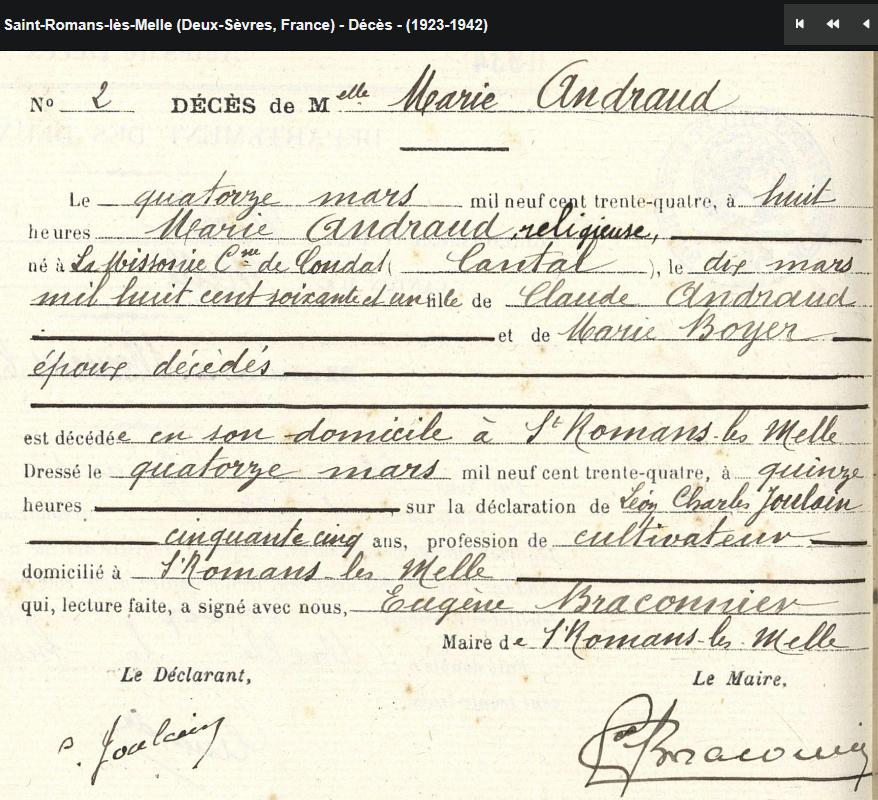 Saint-Romans-lès-Melle (Deux-Sèvres, France) - Décès - (1923-1942)
No 2 DÉCÈS de Melle Marie Andraud
Le quatorze mars mil neuf cent trente-quatre, à huit
heures Marie Andraud, religieuse,
né à La Missonie Cne de Condat ( Cantal ), le dix mars
mil huit cent soixante et un fille de Claude Andraud
et de Marie Boyer
époux décédés
est décédée en son domicile à St Romans-les Melle
Dressé le quatorze mars mil neuf cent trente-quatre, à quinze
heures sur la déclaration de Léon Charles Joulain
cinquante cinq ans, profession de cultivateur
domicilié à St Romans-les Melle
qui, lecture faite, a signé avec nous, Eugène Braconnier
Maire de St Romans-les-Melle
Le Déclarant, Le Maire,
Joulain Braconnier